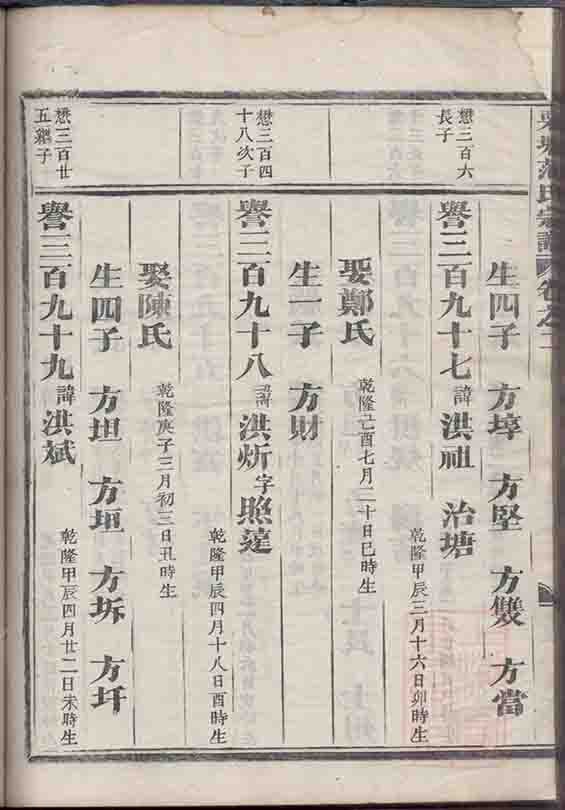 范氏宗譜 卷之二
生四子 方㙇 方堅 方雙 方當
懋三百六
長子
譽三百九十七 諱洪祖 治塘
乾隆甲辰三月十六日卯時生
娶鄭氏
乾隆己酉七月二十日巳時生
生一子 方財
懋三百四
十八次子
譽三百九十八 諱洪炘 字照遠
乾隆甲辰四月十八日酉時生
娶陳氏
乾隆庚子三月初三日丑時生
生四子 方坦 方垣 方坼 方圩
懋三百廿
五繼子
譽三百九十九 諱洪斌
乾隆甲辰四月廿二日未時生